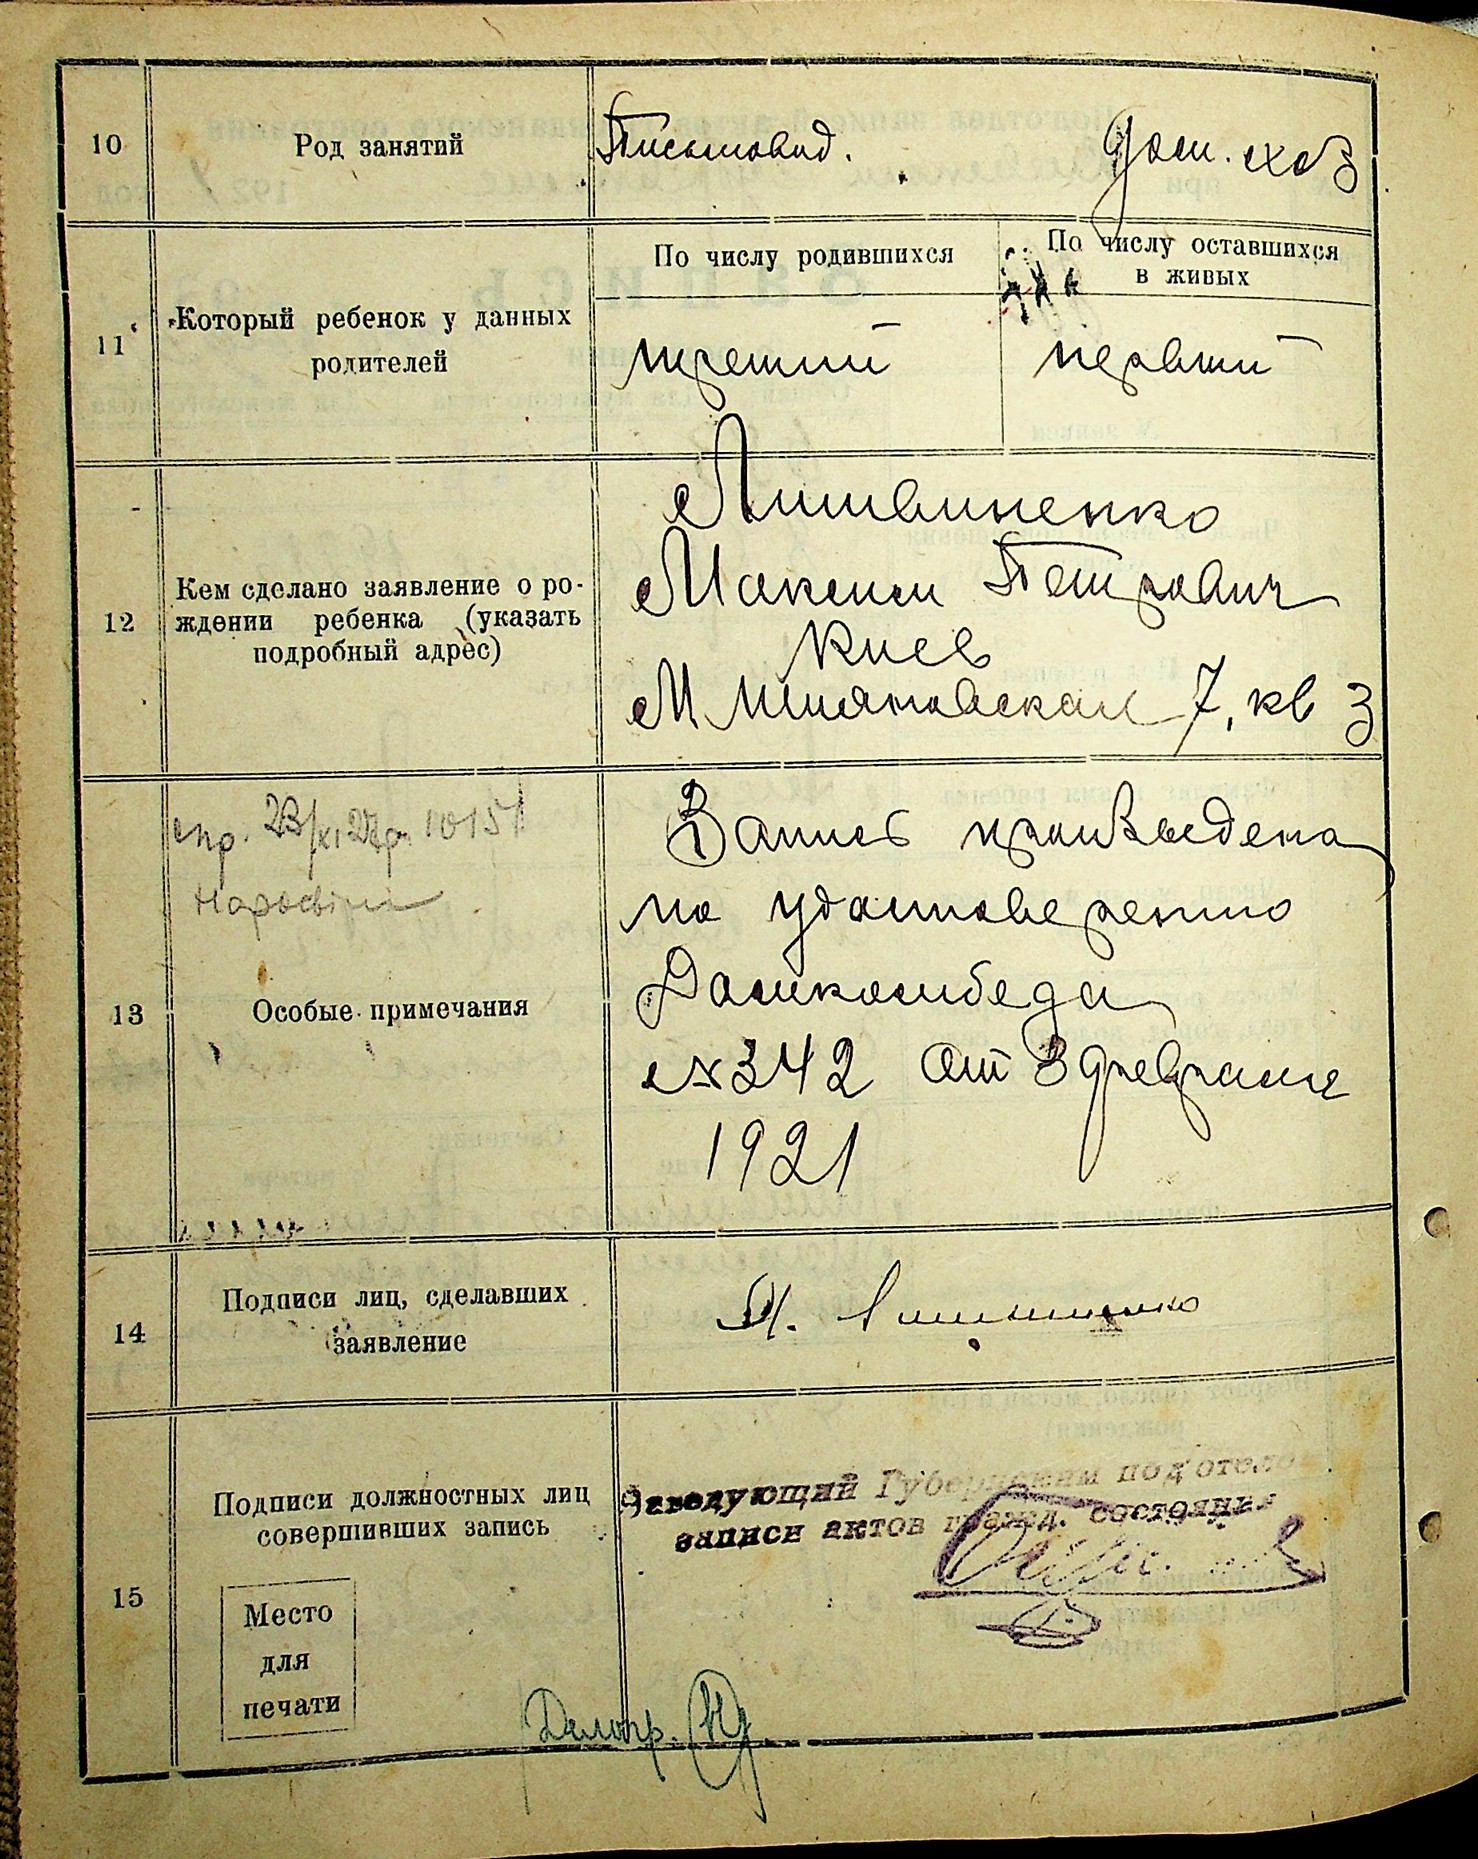 10 Род занятий Письмовод. Дом. хоз
11 Который ребенок у данных
родителей
По числу родившихся
По числу оставшихся
в живых
третий первый
12 Кем сделано заявление о ро-
ждении ребенка (указать
подробный адрес)
Литвиненко
Максим Петрович
Киев
7, кв 3
спр. 23/XI 27р. 10151
13 Особые примечания
Запись произведена
по удостоверению
Домкомбеда
№ 342 от 3 февраля
1921
14 Подписи лиц, сделавших
заявление
М. Литвиненко
15 Подписи должностных лиц
совершивших запись
Заведующий Губернским подотдело
записи актов гражд. состояния
Место
для
печати
Делопр.